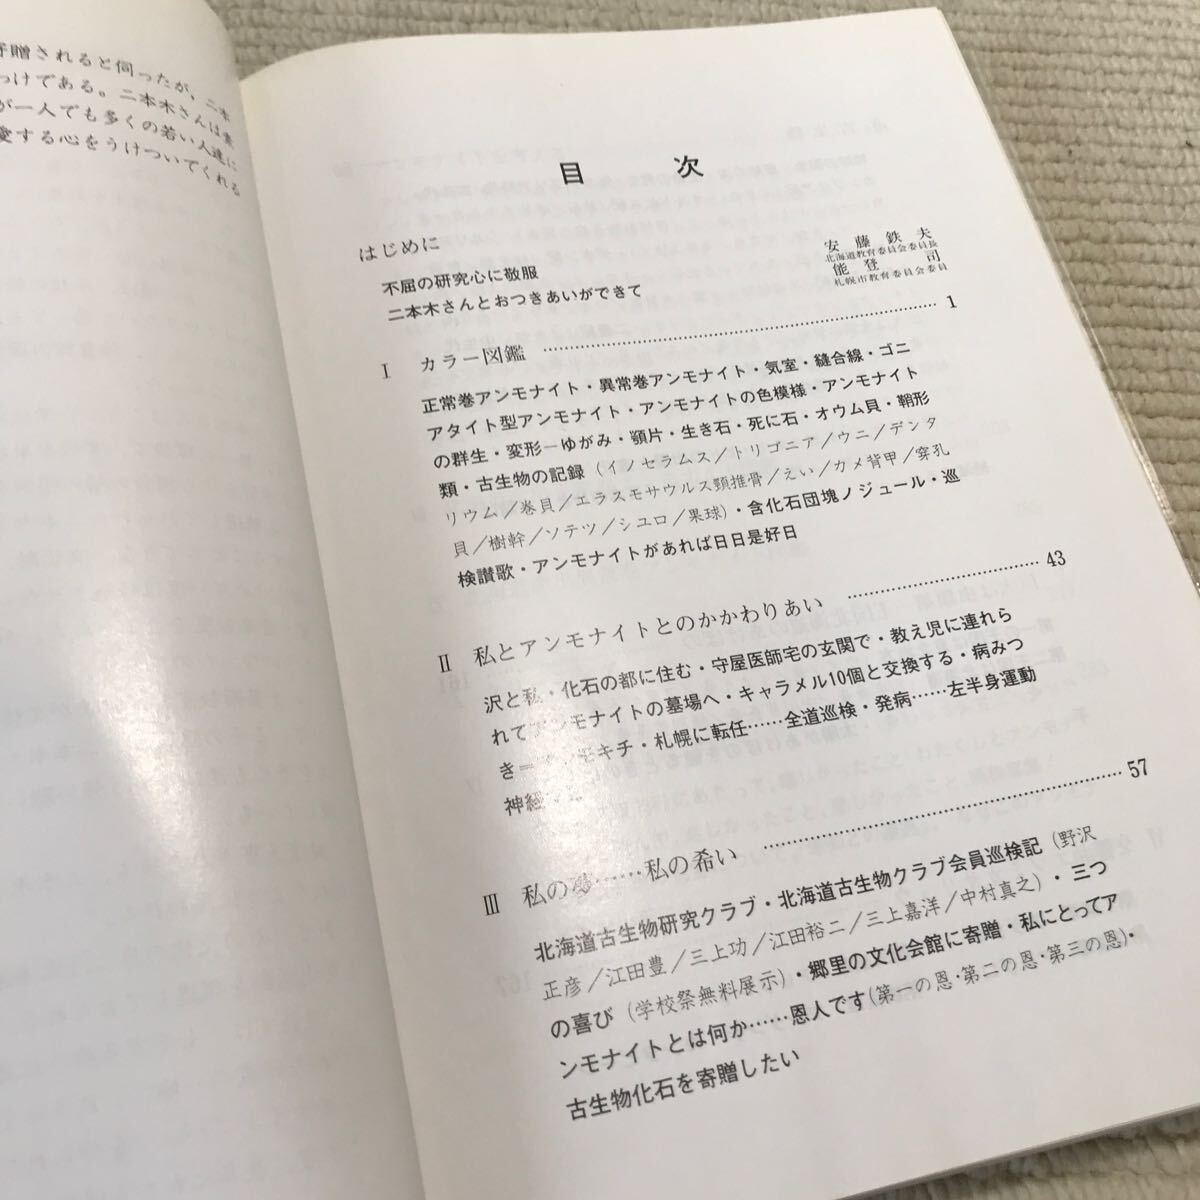 寄贈されると伺ったが、二本
わけである。二本木さんは素
が一人でも多くの若い人達に
愛する心をうけついでくれる
目次
はじめに
不屈の研究心に敬服
安藤鉄夫
北海道教育委員会委員長
二本木さんとおつきあいができて
能登司
札幌市教育委員会委員
Ⅰ カラー図鑑 …… 1
正常巻アンモナイト・異常巻アンモナイト・気室・縫合線・ゴニ
アタイト型アンモナイト・アンモナイトの色模様・アンモナイト
の群生・変形―ゆがみ・顎片・生き石・死に石・オウム貝・鞘形
類・古生物の記録（イノセラムス／トリゴニア／ウニ／デンタ
リウム／巻貝／エラスモサウルス頸推骨／えい／カメ背甲／穿孔
貝／樹幹／ソテツ／シユロ／果球）・含化石団塊ノジュール・巡
検讃歌・アンモナイトがあれば日日是好日
Ⅱ 私とアンモナイトとのかかわりあい …… 43
沢と私・化石の都に住む・守屋医師宅の玄関で・教え児に連れら
れてアンモナイトの墓場へ・キャラメル10個と交換する・病みつ
き＝アンモキチ・札幌に転任……全道巡検・発病……左半身運動
神経
Ⅲ 私の夢……私の希い …… 57
北海道古生物研究クラブ・北海道古生物クラブ会員巡検記（野沢
正彦／江田豊／三上功／江田裕二／三上嘉洋／中村真之）・三つ
の喜び（学校祭無料展示）・郷里の文化会館に寄贈・私にとってア
ンモナイトとは何か……恩人です（第一の恩・第二の恩・第三の恩）・
古生物化石を寄贈したい